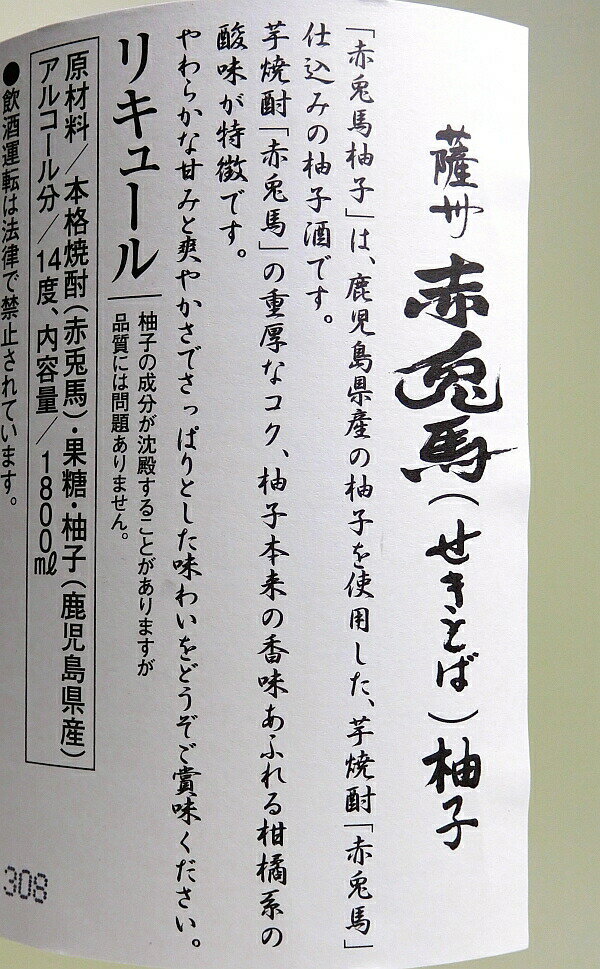 薩州 赤兎馬(せきとば)柚子
「赤兎馬柚子」は、鹿児島県産の柚子を使用した、芋焼酎「赤兎馬」
仕込みの柚子酒です。
芋焼酎「赤兎馬」の重厚なコク、柚子本来の香味あふれる柑橘系の
酸味が特徴です。
やわらかな甘みと爽やかさでさっぱりとした味わいをどうぞご賞味ください。
リキュール
柚子の成分が沈殿することがありますが
品質には問題ありません。
原材料/本格焼酎(赤兎馬)・果糖・柚子(鹿児島県産)
アルコール分/14度、内容量/1800㎖
●飲酒運転は法律で禁止されています。
308